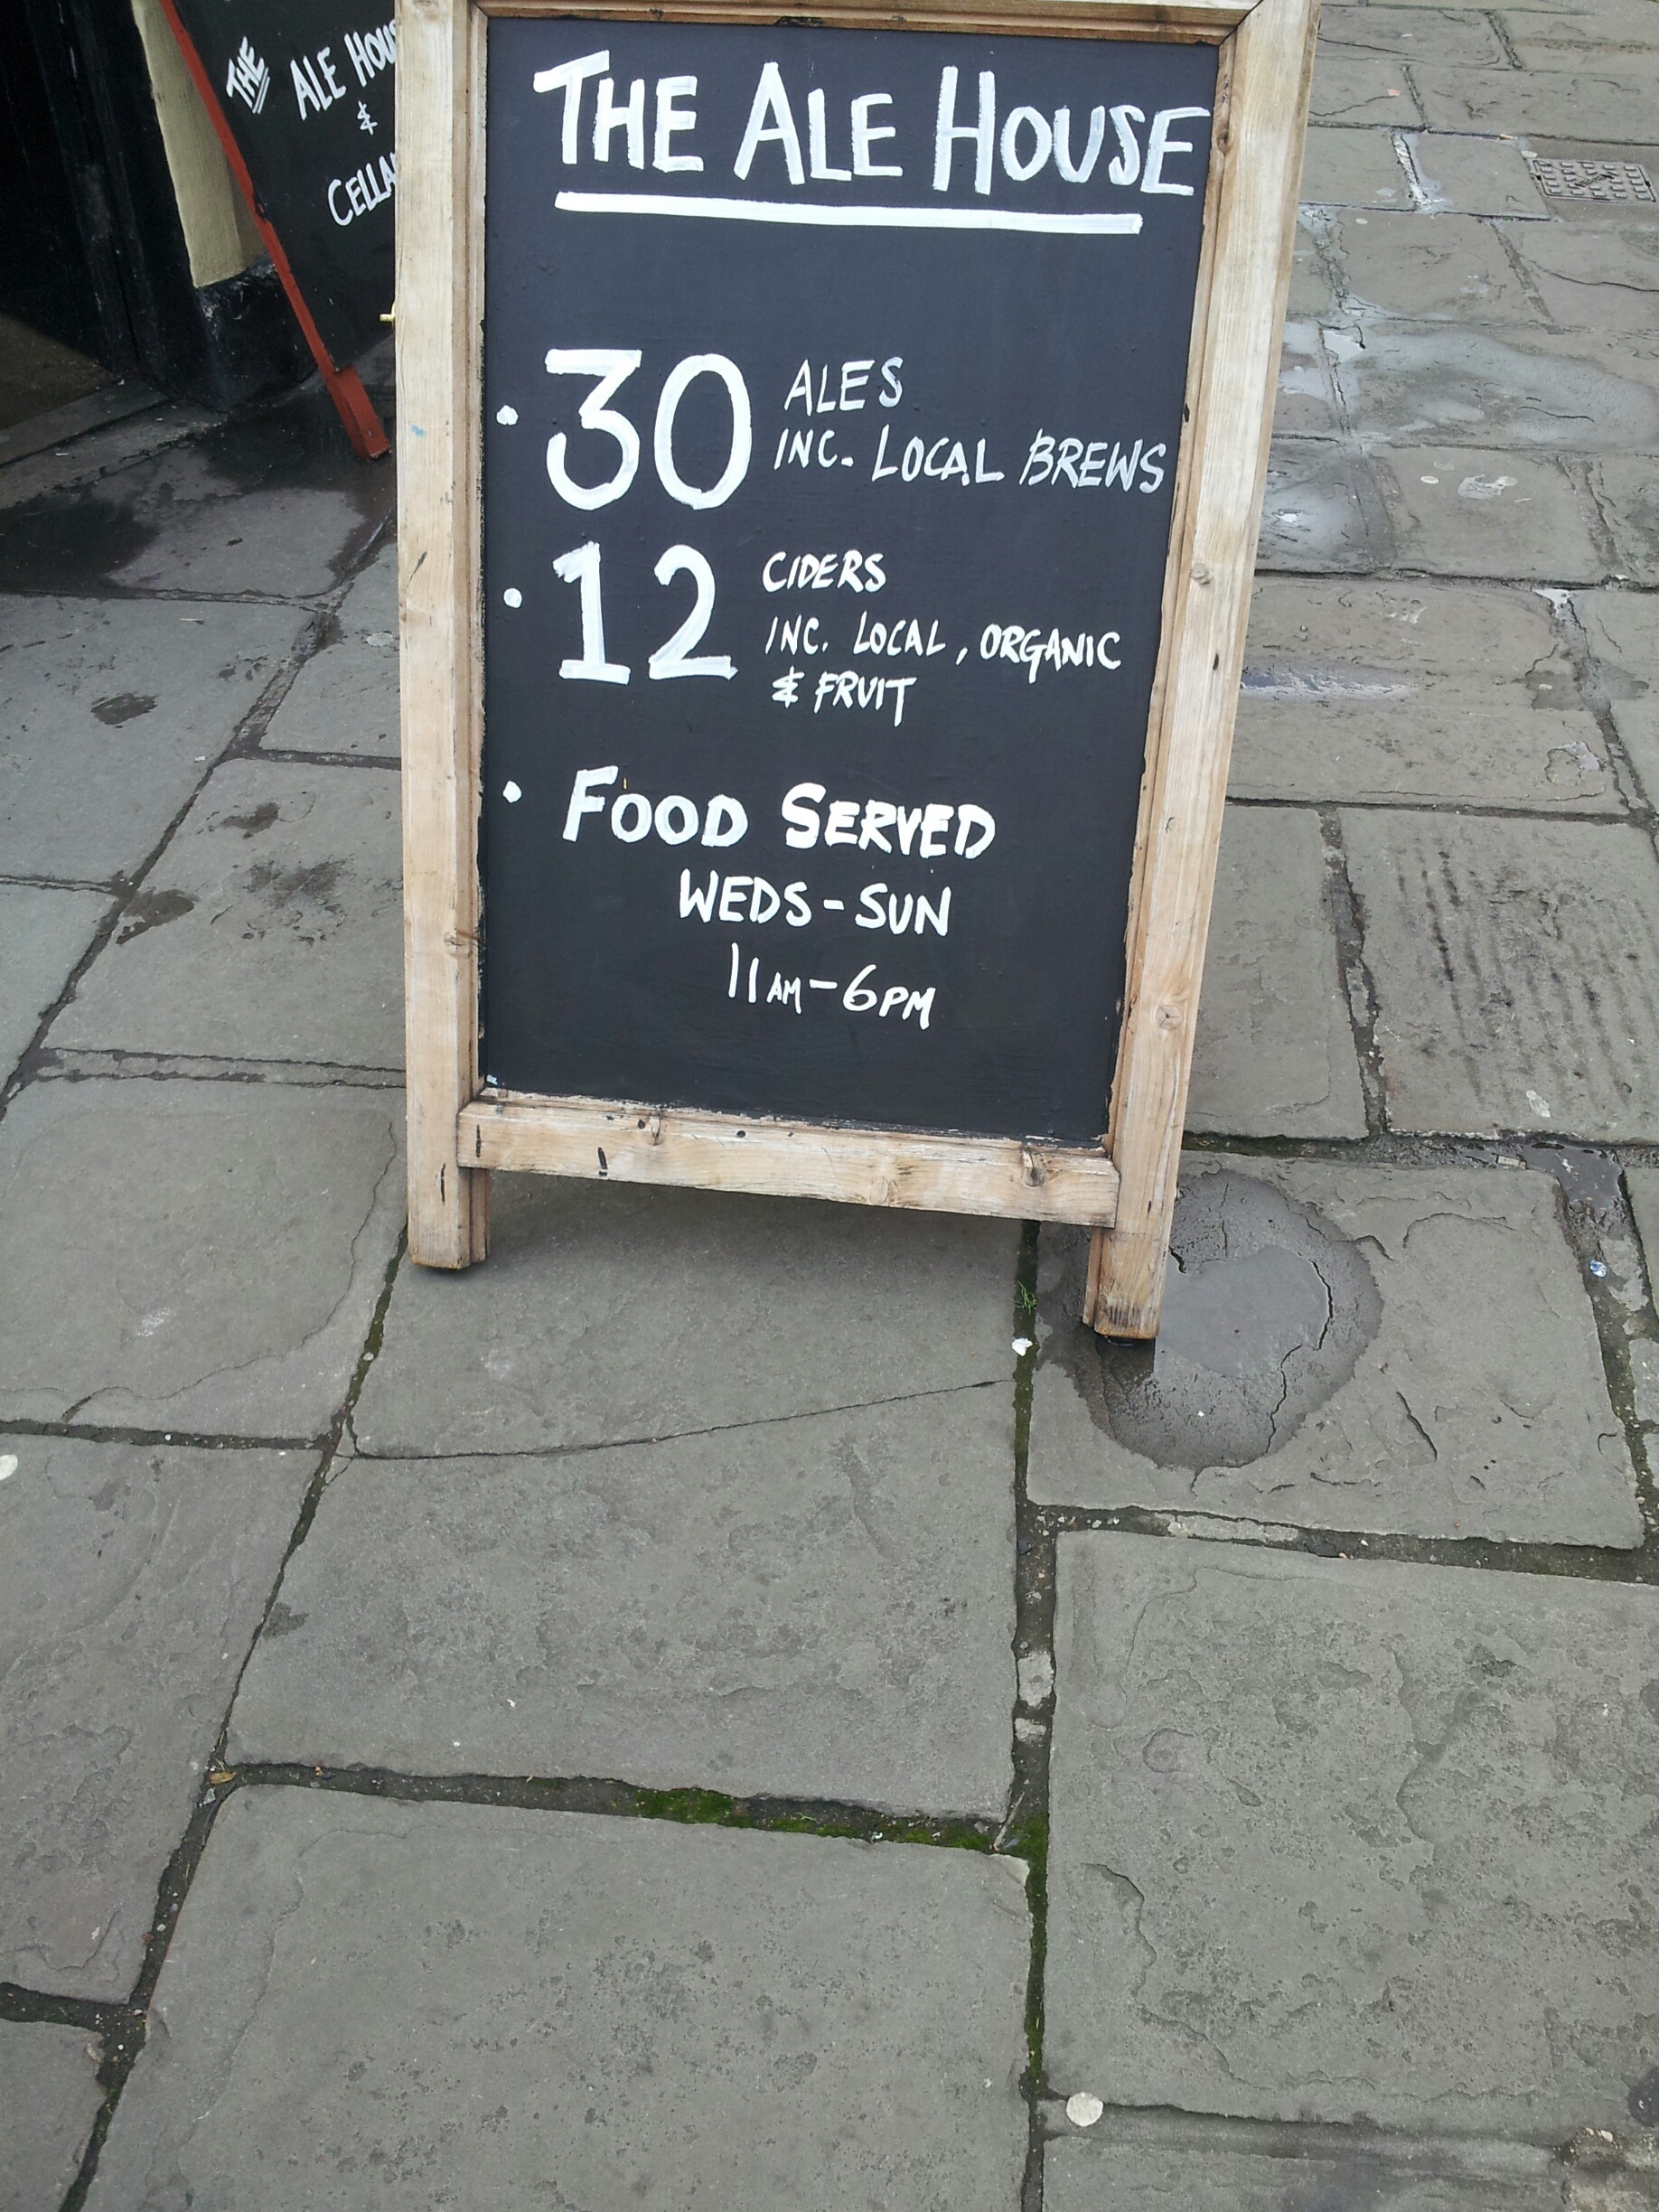 THE ALE HOUSE
• 30 ALES
INC. LOCAL BREWS
• 12 CIDERS
INC. LOCAL, ORGANIC
& FRUIT
• FOOD SERVED
WEDS-SUN
11AM-6PM
THE ALE
&